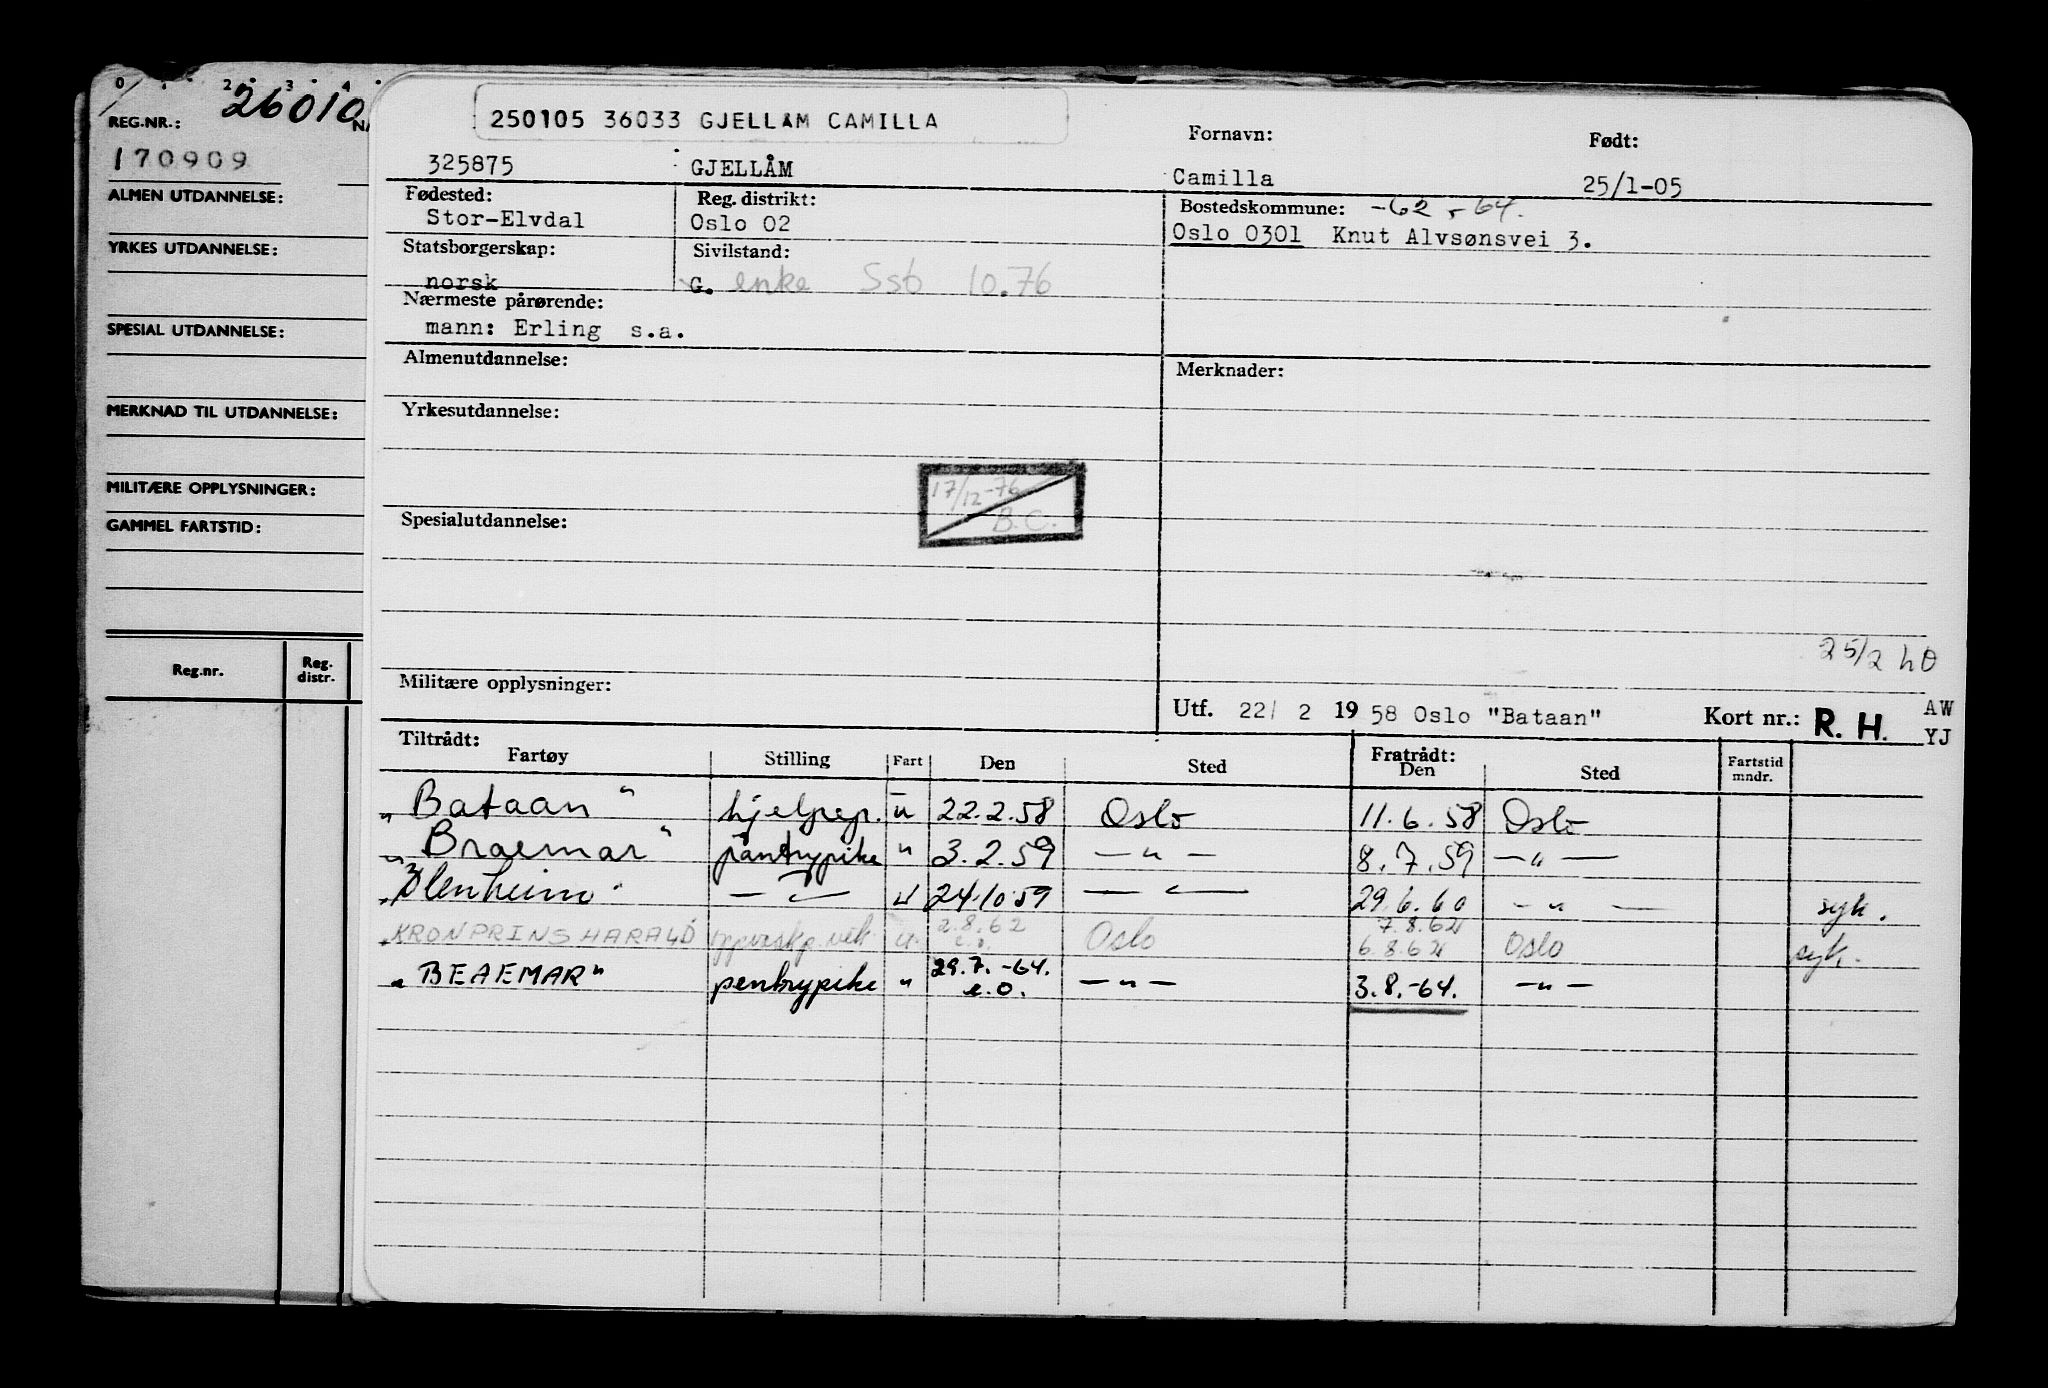 0 2 3 4
26010
REG.NR.:
170909
ALMEN UTDANNELSE:
YRKES UTDANNELSE:
SPESIAL UTDANNELSE:
MERKNAD TIL UTDANNELSE:
MILITÆRE OPPLYSNINGER:
GAMMEL FARTSTID:
Reg.nr. Reg. distr.
250105 36033 GJELLAM CAMILLA
Fornavn: Født:
325875 GJELLÅM Camilla 25/1-05
Fødested: Reg. distrikt: Bostedskommune: -62, -64.
Stor-Elvdal Oslo 02 Oslo 0301 Knut Alvsønsvei 3.
Statsborgerskap: Sivilstand:
norsk G. enke Ssb 10.76
Nærmeste pårørende:
mann: Erling s.a.
Almenutdannelse: Merknader:
Yrkesutdannelse:
17/12-76
B.C.
Spesialutdannelse:
25/2
Militære opplysninger:
Utf. 22/ 2 1958 Oslo "Bataan" Kort nr.: R. H. AW
YJ
Tiltrådt: Fratrådt:
Fartøy Stilling Fart Den Sted Den Sted Fartstid mndr.
"Bataan" hjelpep. u 22.2.58 Oslo 11.6.58 Oslo
"Braemar" pantrypike " 3.2.59 — " — 8.7.59 — " —
"Blenheim" — " — u 24.10.59 — " — 29.6.60 — " — syk.
"KRONPRINS HARALD u. 2.8.62 e.o. Oslo 7.8.62 6.8.62 Oslo syk.
"BEAEMAR" pentrypike " 29.7.-64. e.o. — " — 3.8.-64. — " —